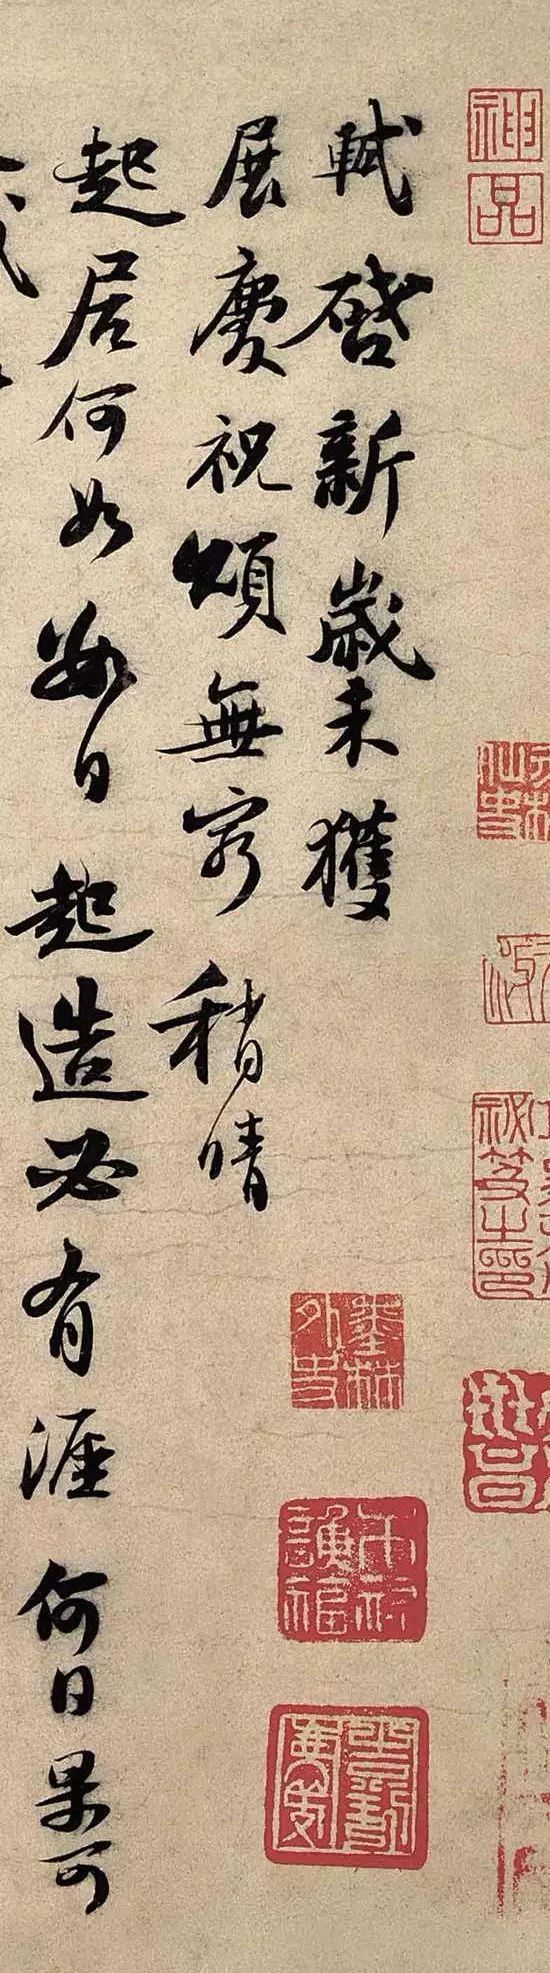 軾啓新歲未獲
展慶祝頌無窮稍晴
起居何如數日起造必有涯何日果可
神品